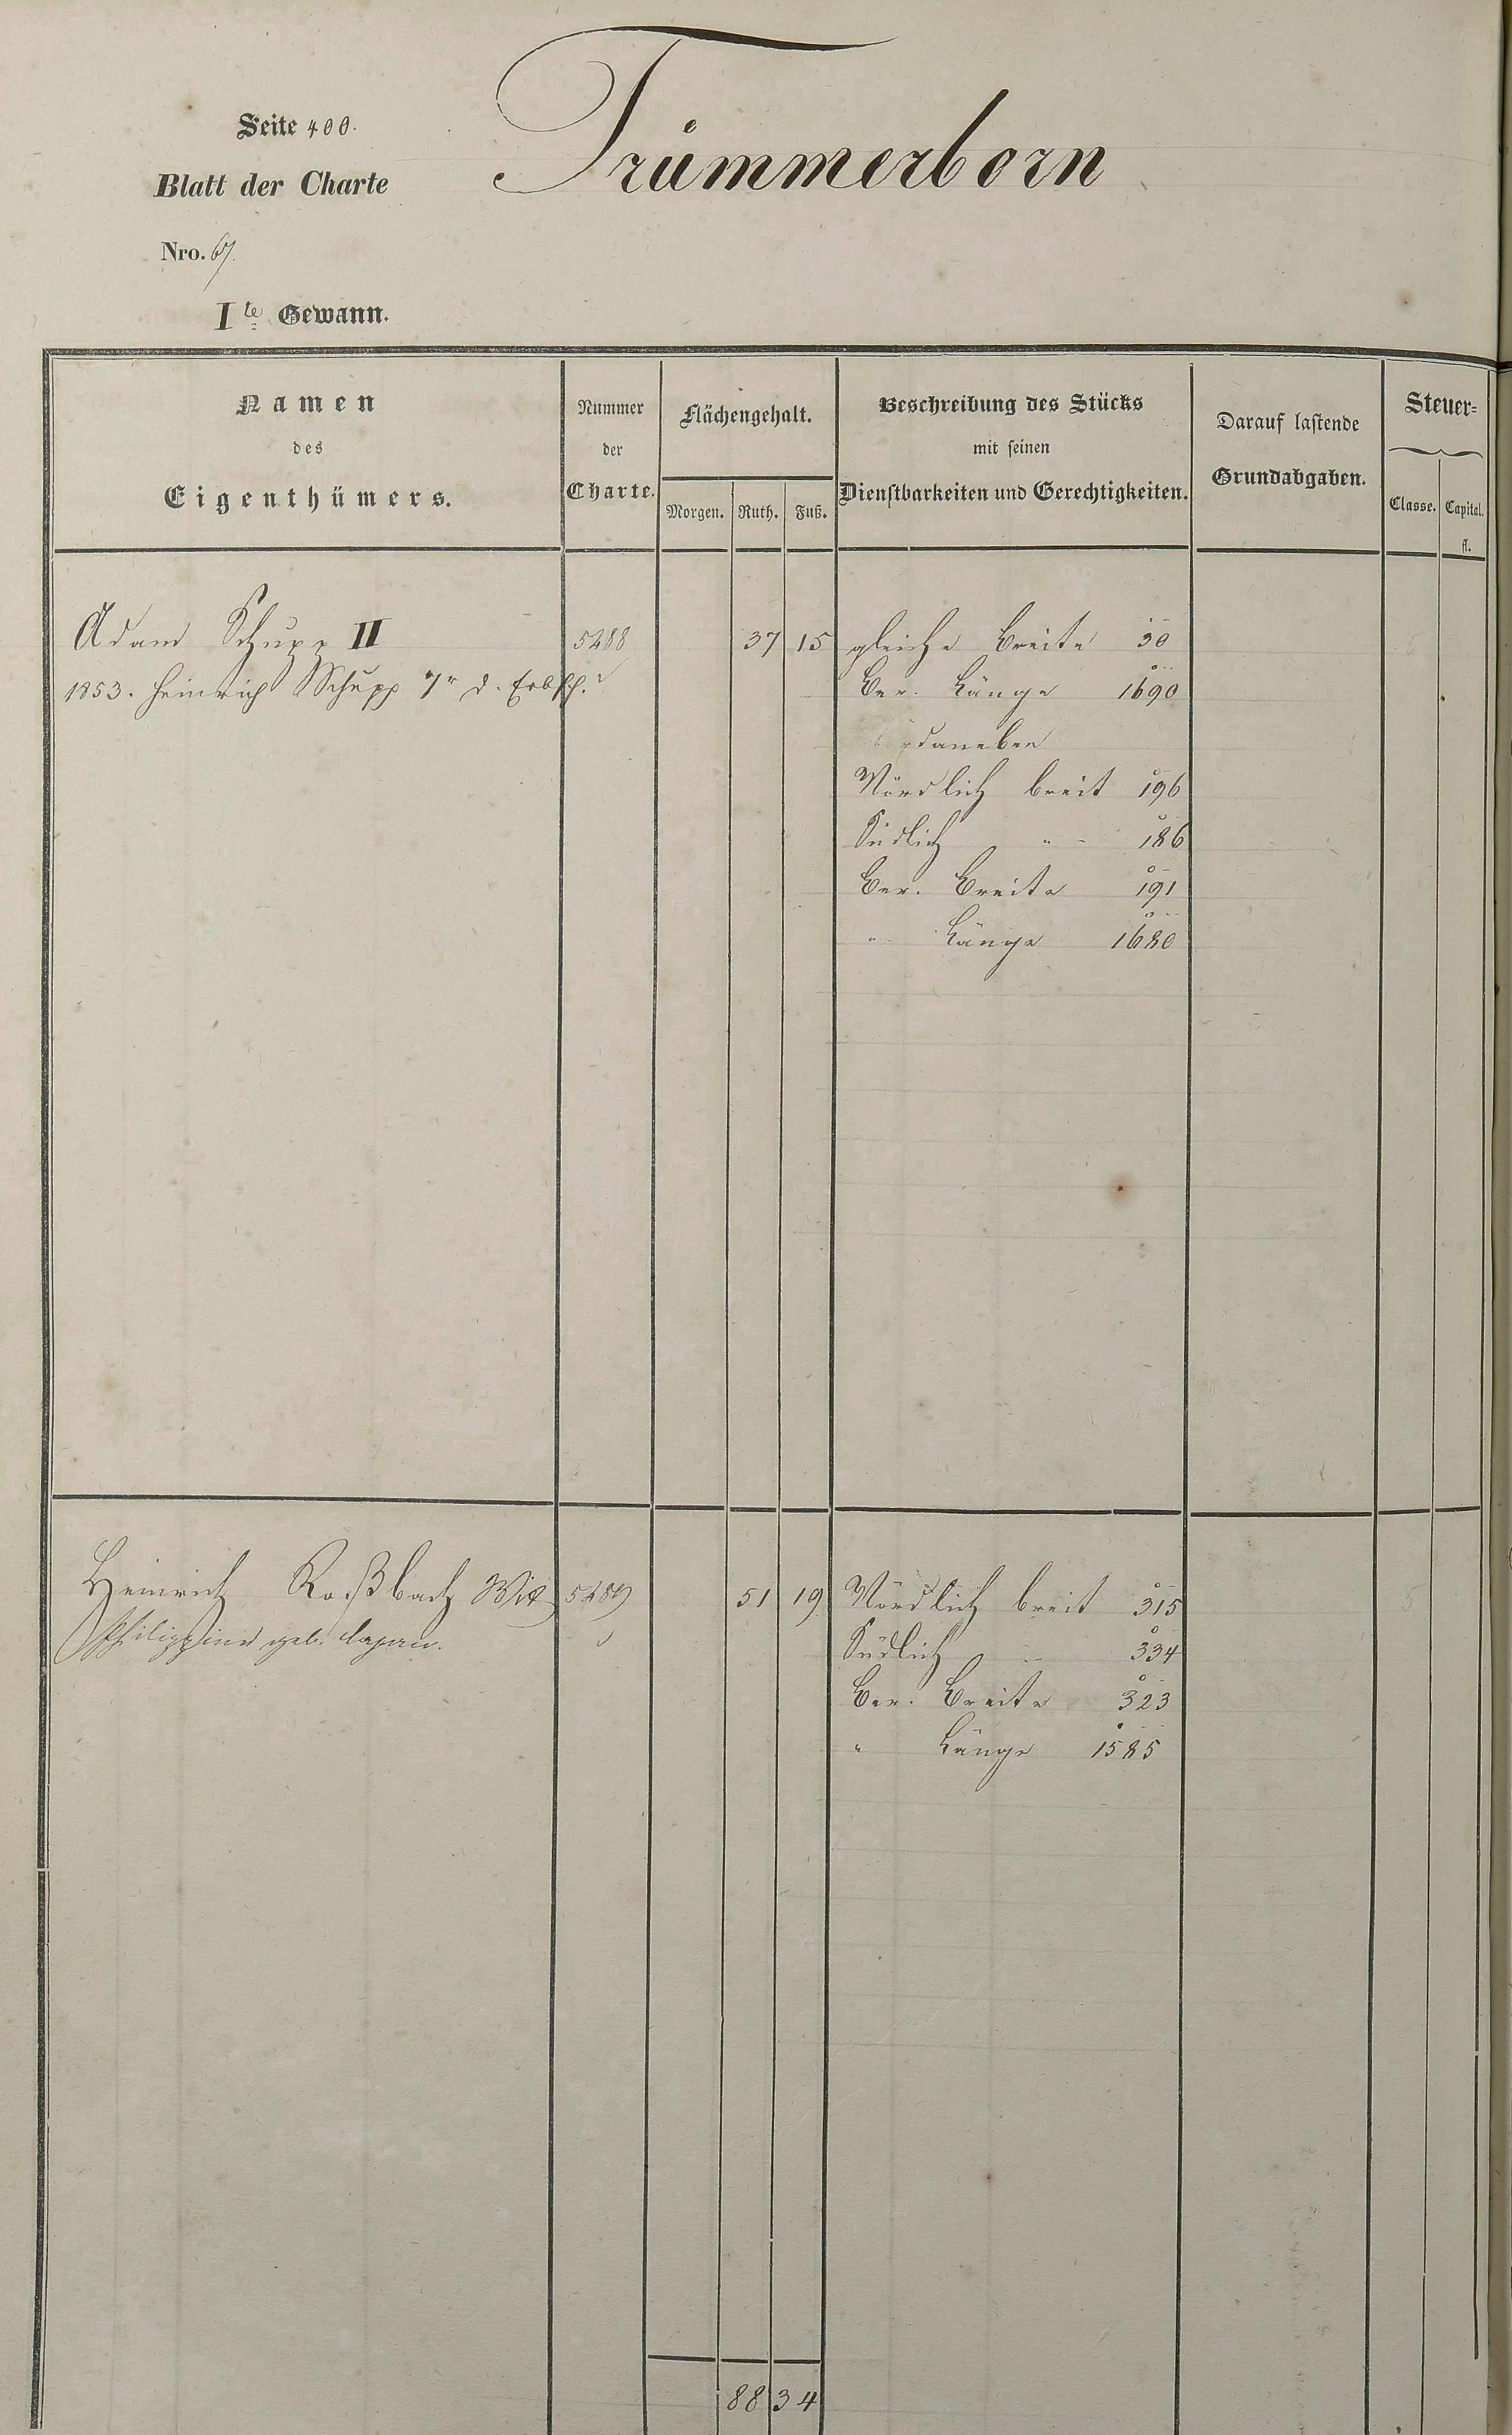 Seite 400.
Trümmerborn
Blatt der Charte
Nro. 67.
Ite Gewann.
Namen
des
Eigenthümers.
Nummer
der
Charte.
Flächengehalt.
Morgen. Ruth. Fuß.
Beschreibung des Stücks
mit seinen
Dienstbarkeiten und Gerechtigkeiten.
Darauf lastende
Grundabgaben.
Steuer-
Classe. Capital.
fl.
Adam Schupp II 5288 37 15 gleiche Breite 30
1853. Heinrich Schupp 7r d. Erbsch. Ber. Länge 1690
daneben
Nördlich breit 196
Südlich " 186
Ber. Breite 191
" Länge 1680
Heinrich Roßbach Wit 5289 51 19 Nördlich breit 315
Philippine geb. Südlich " 334
Ber. Breite 323
" Länge 1585
88 34